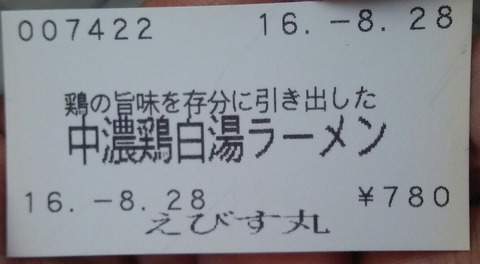 007422 16.-8.28
鶏の旨味を存分に引き出した
中濃鶏白湯ラーメン
16.-8.28 ¥780
えびす丸